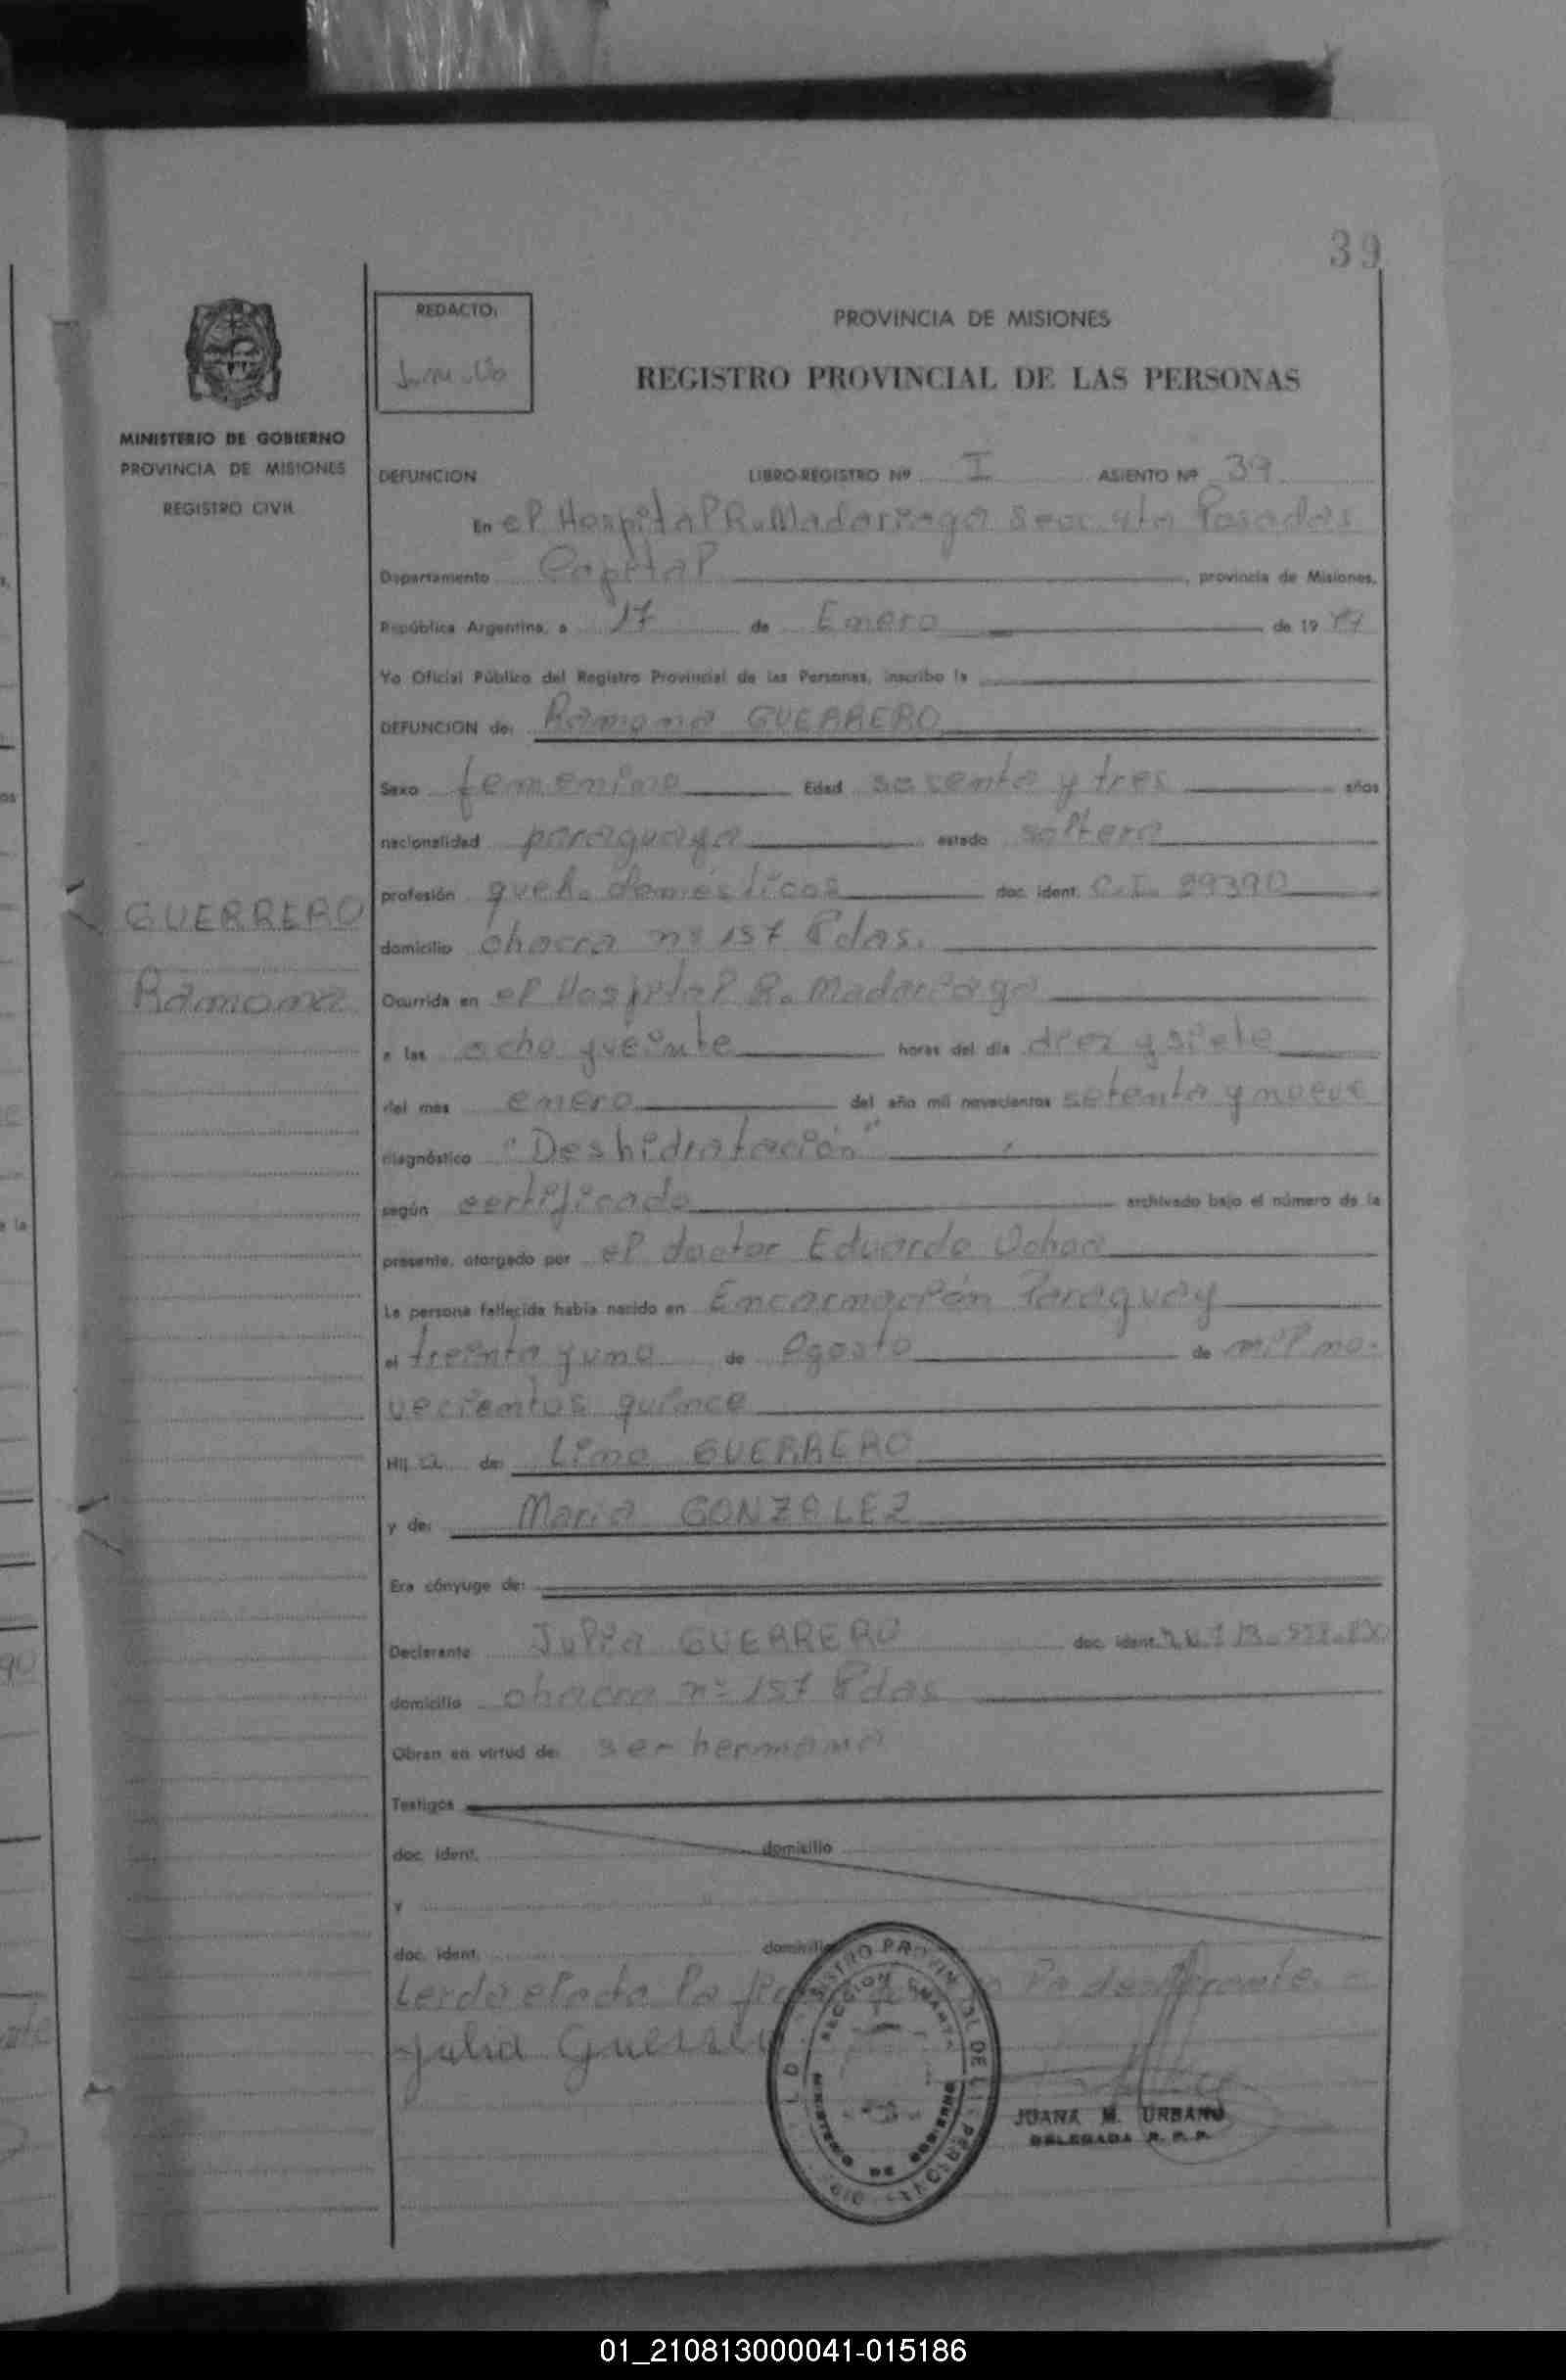 39
REDACTO:
PROVINCIA DE MISIONES
REGISTRO PROVINCIAL DE LAS PERSONAS
MINISTERIO DE GOBIERNO
PROVINCIA DE MISIONES
REGISTRO CIVIL
DEFUNCION LIBRO-REGISTRO Nº I ASIENTO Nº 39
En el Hospital R. Madariaga Secc 4ta Posadas
Departamento Capital, provincia de Misiones,
República Argentina, a 17 de Enero de 1979
Yo Oficial Público del Registro Provincial de las Personas, inscribo la
DEFUNCION de: Ramona GUERRERO
Sexo femenino Edad sesenta y tres años
nacionalidad paraguaya estado soltera
profesión queh. domésticos doc. ident. C.I. 89390
GUERRERO
Ramona
domicilio chacra nº 157 Pdas.
Ocurrida en el Hospital R. Madariaga
a las ocho y veinte horas del día diez y siete
del mes enero del año mil novecientos setenta y nueve
diagnóstico "Deshidratación"
según certificado archivado bajo el número de la
presente, otorgado por el doctor Eduardo Ochoa
La persona fallecida había nacido en Encarnación Paraguay
el treinta y uno de Agosto de mil no-
vecientos quince
HIJa de: Lino GUERRERO
y de: Maria GONZALEZ
Era cónyuge de:
Declarante Julia GUERRERO doc. ident.
domicilio chacra nº 157 Pdas
Obran en virtud de: ser hermana
Testigos
doc. ident. domicilio
y
doc. ident. domicilio
Leida el acta la declarante.
Julia Guerrero
REGISTRO PROVINCIAL DE LAS PERSONAS
SECCION CUARTA
MINISTERIO DE GOBIERNO
JUANA M. URBANO
DELEGADA R. P. P.
01_210813000041-015186